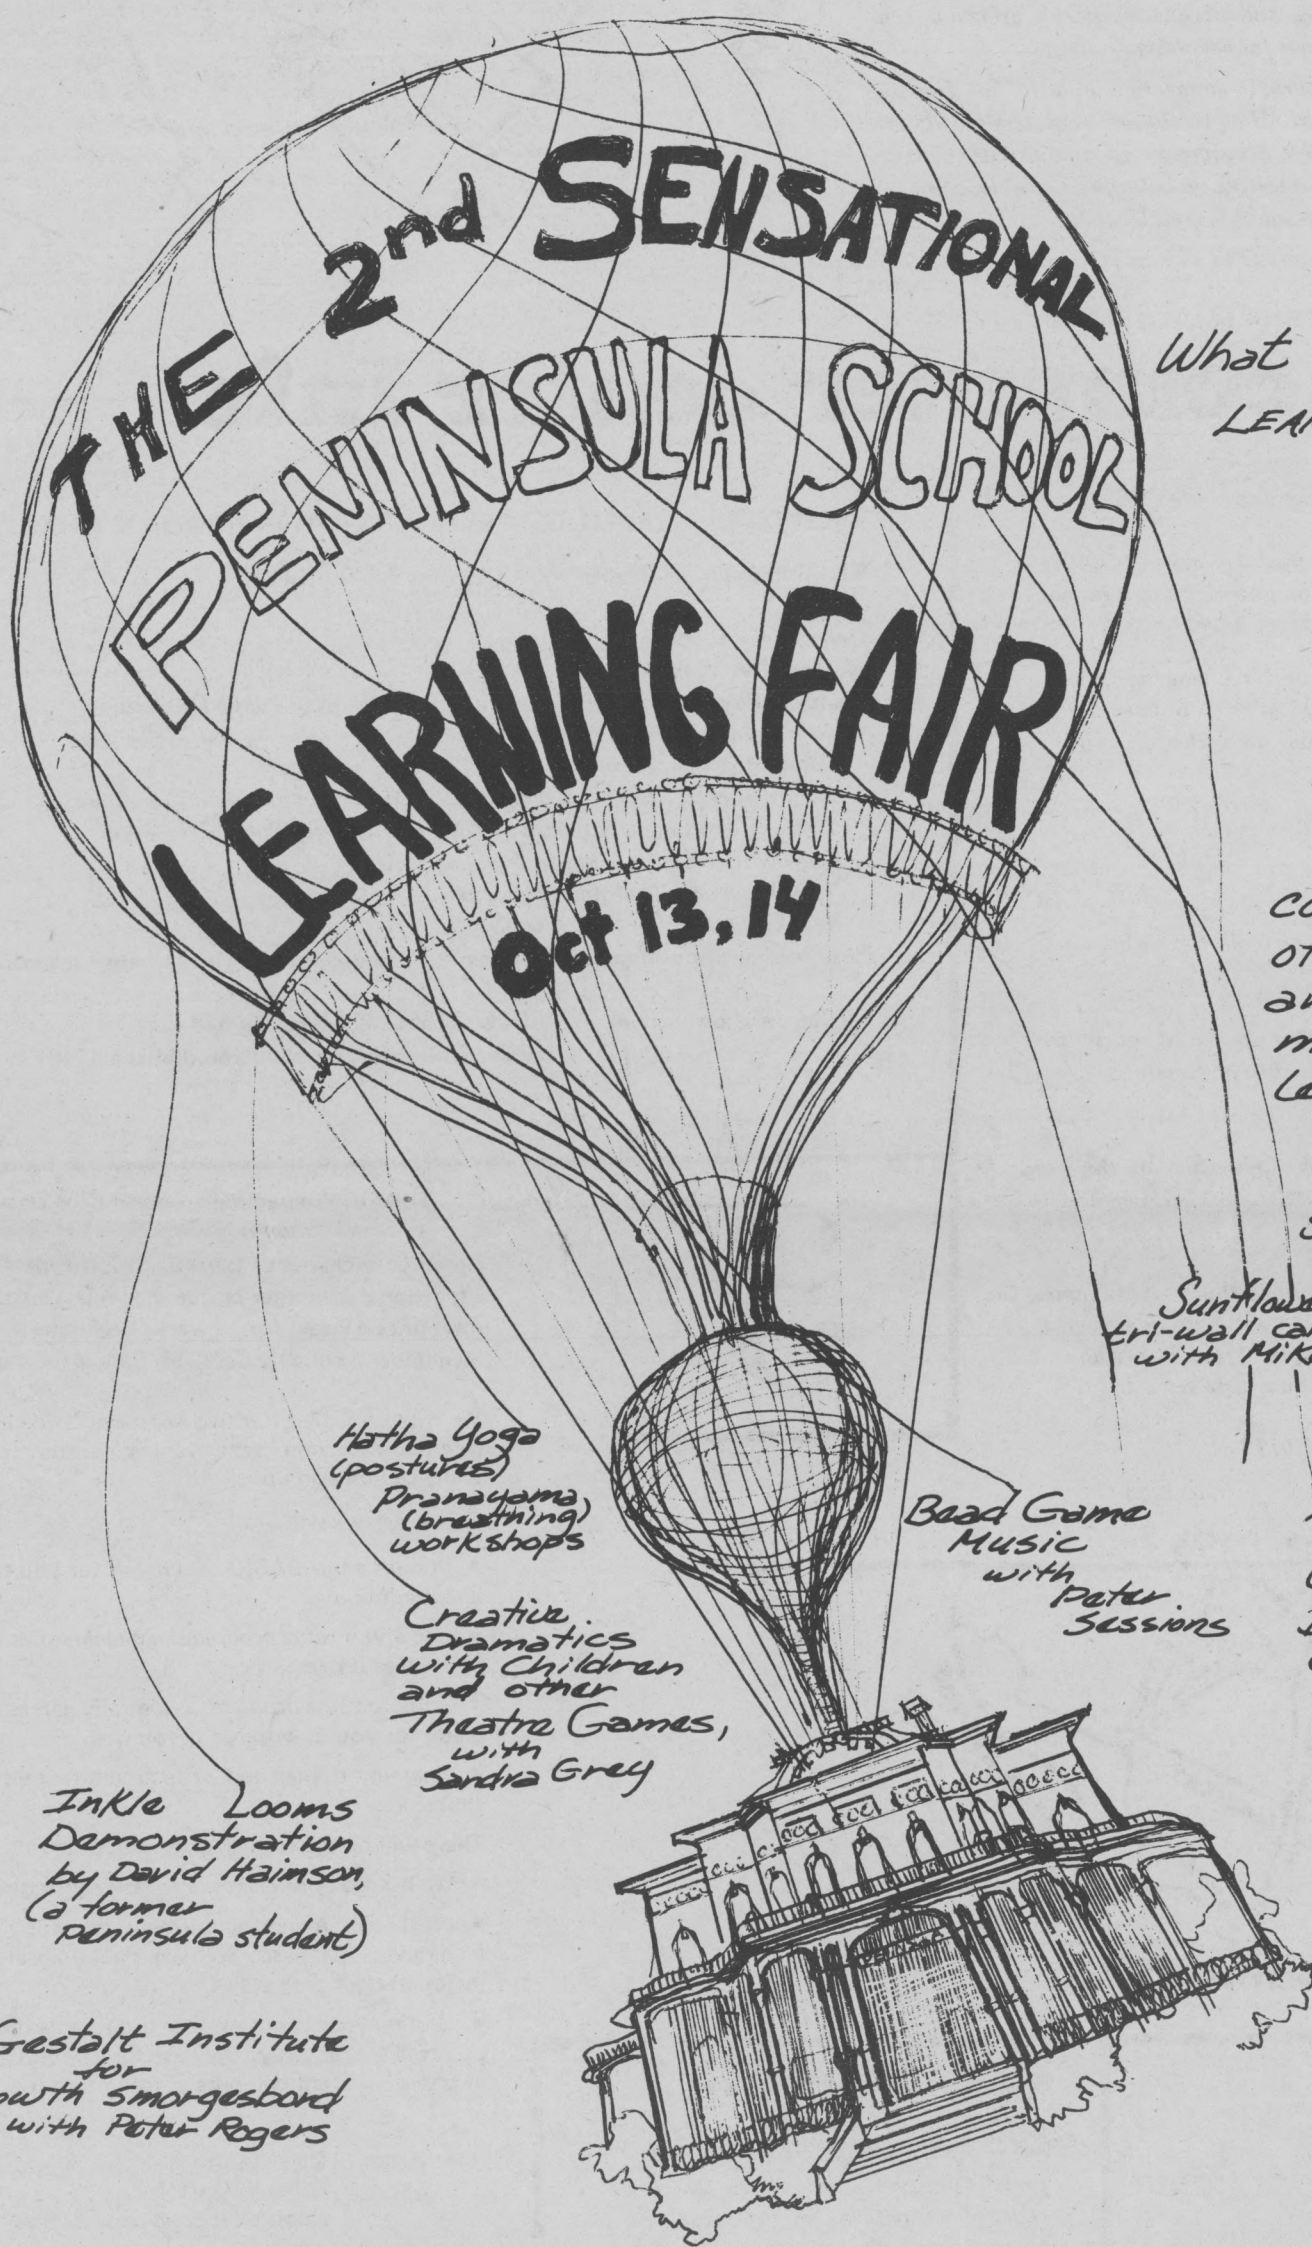 THE 2nd SENSATIONAL
PENINSULA SCHOOL
LEARNING FAIR
Oct 13, 14
What
Sunflowe
tri-wall ca
with Mik
Hatha Yoga
(postures)
Pranayama,
(breathing)
workshops
Bead Game
Music
with
Peter
Sessions
Creative
Dramatics
with Children
and other
Theatre Games,
with
Sandra Grey
Inkle Looms
Demonstration
by David Haimson,
(a former
Peninsula student)
Gestalt Institute
for
owth Smorgesbord
with Peter Rogers